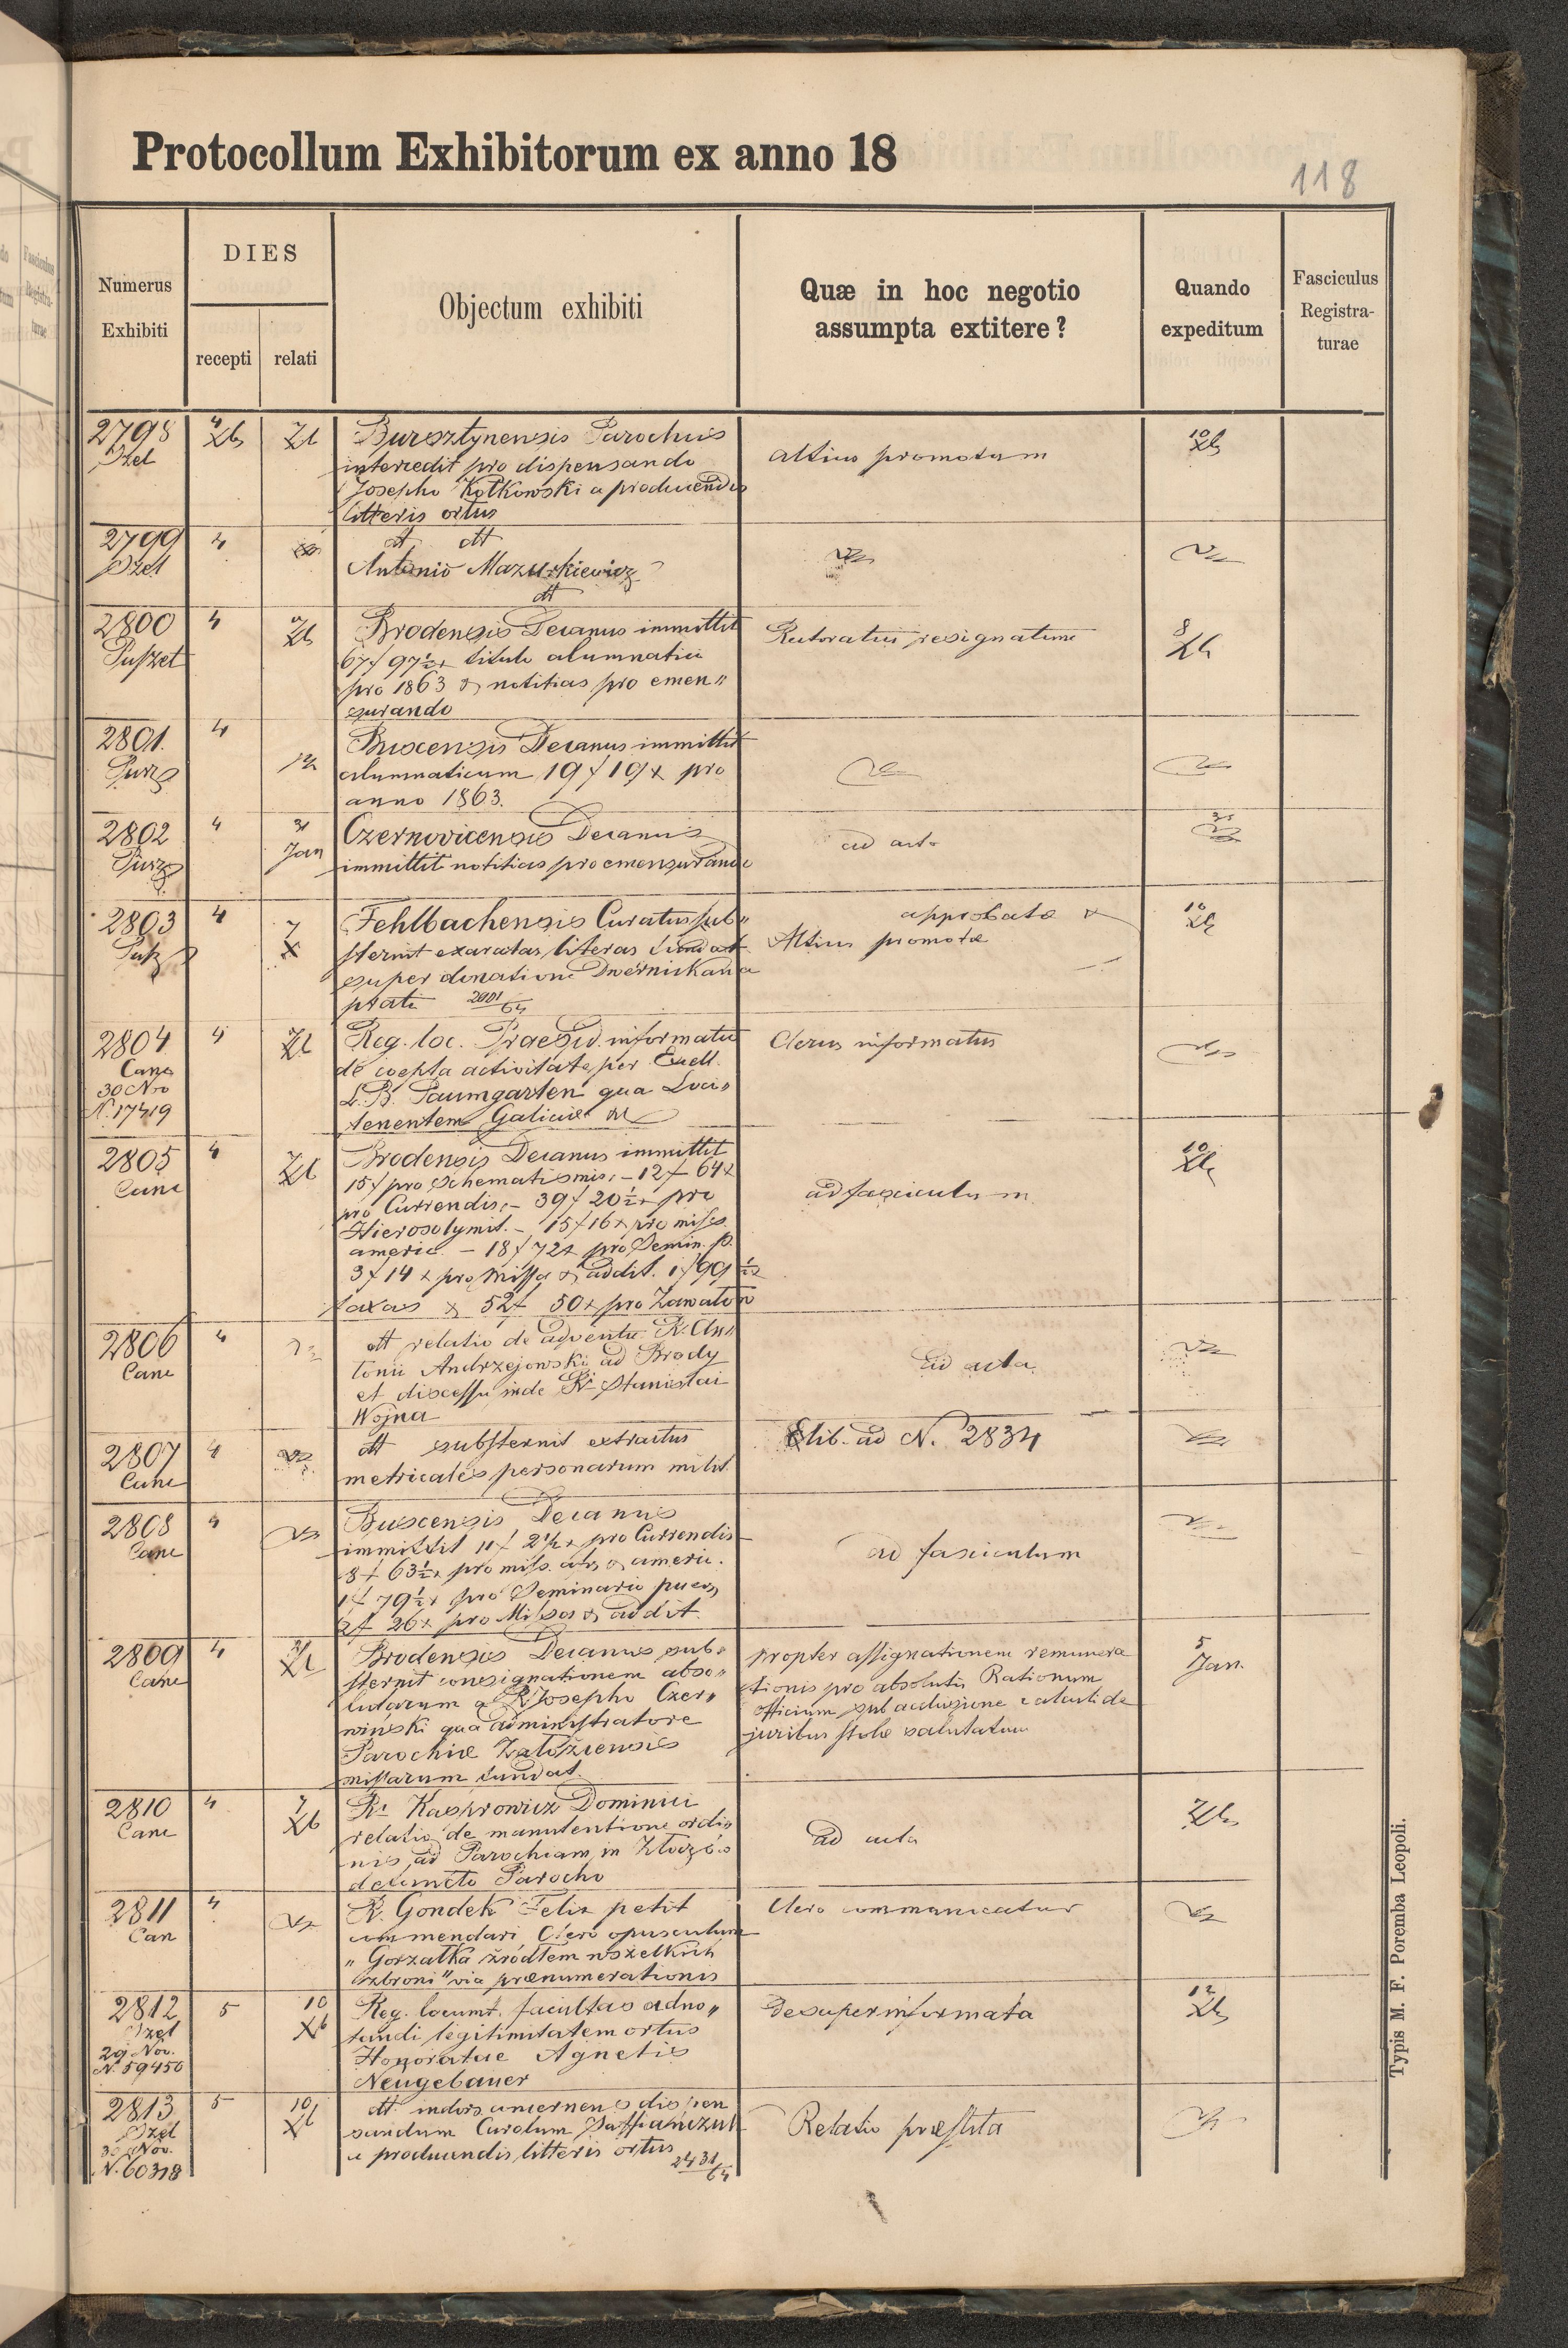 Protocollum Exhibitorum ex anno 18
118
Numerus Exhibiti
DIES
recepti relati
Objectum exhibiti
Quæ in hoc negotio assumpta extitere?
Quando expeditum
Fasciculus Registra-turae
2798 4 Xb
Bursztynensis Parochus
intercedit pro dispensando
Josepho Kotkowski a producendis
litteris ortus
altius promotum
10 Xb
2799 4
dtt dtt
Antonio Mazurkiewicz
dtt
2800 4
Brodensis Decanus immittit
67f 97½x titulo alumnatici
pro 1863 & notitias pro emen„
surando
Rectoratui resignatum
8 Xb
2801. 4
Buscensis Decanus immittit
alumnaticum 19f 19x pro
anno 1863.
2802 4 31 Jan
Czernovicensis Decanus
immittit notitias pro emensurando
ad acta
31
2803 4 7 X
Fehlbachensis Curatus sub„
sternit exaratas literas fundat.
super donatione Dwernickana
prati 2901/64
approbatæ &
Altius promotæ
10 Xb
2804 4
30 Nov
N. 17419
Reg. loc. Praesid. informatio
de coepta activitate per Excell.
L.B. Paumgarten qua Loci„
tenentem Galiciæ
Clerus informatus
2805 4
Brodensis Decanus immittit
15f pro Schematismis, – 12f 64x
pro Currendis, – 39f 20½x pro
Hierosolymit. – 15f 16x pro miss.
americ. – 18f 72x pro Semin. p.
3f 14x pro Missa & addit. 1f 99½
taxas & 52f 50x pro
ad fasciculum
10 Xb
2806 4
dtt relatio de adventu R. An„
tonii Andrzejowski ad Brody
et discessu inde R. Stanislai
Wojna
ad acta
2807 4
dtt substernit extractus
metricales personarum milit.
Elib. ad N. 2834
2808 4
Buscensis Decanus
immittit 11f 2½x pro Currendis
8f 63½x pro miss. afr. & americ.
1f 79½x pro Seminario puer.
2f 26x pro Missas & addit.
ad fasciculum
2809 4 31 Xb
Brodensis Decanus sub„
sternit consignationem abso„
lutarum a R. Josepho Czer„
winski qua administratore
Parochiæ Załoziensis
missarum fundat.
propter assignationem remunera
tionis pro absolutis Rationum
officium sub acclusione calculi de
juribus stolæ salutatum
5 Jan.
2810 4 7 Xb
Rs Kasprowicz Dominici
relatio de manutentione ordi„
nis ad Parochiam in Złoczów
defuncto Parocho
ad acta
2811 4
R. Gondek Felix petit
commendari Clero opusculum
„Gorzałka źródłem wszelkich
zbroni" via prænumerationis
Clero communicatur
2812 5 10 Xb
29 Nov.
N. 59450
Reg. locumt. facultas adno„
tandi legitimitatem ortus
Honoratae Agnetis
Neugebauer
Desuper informata
12 Xb
2813 5 10 Xb
30 Nov.
N. 60318
dtt indors. concernens dispen
sandum Carolum
a producendis litteris ortus
2431/64
Relatio præstita
Typis M. F. Poremba Leopoli.